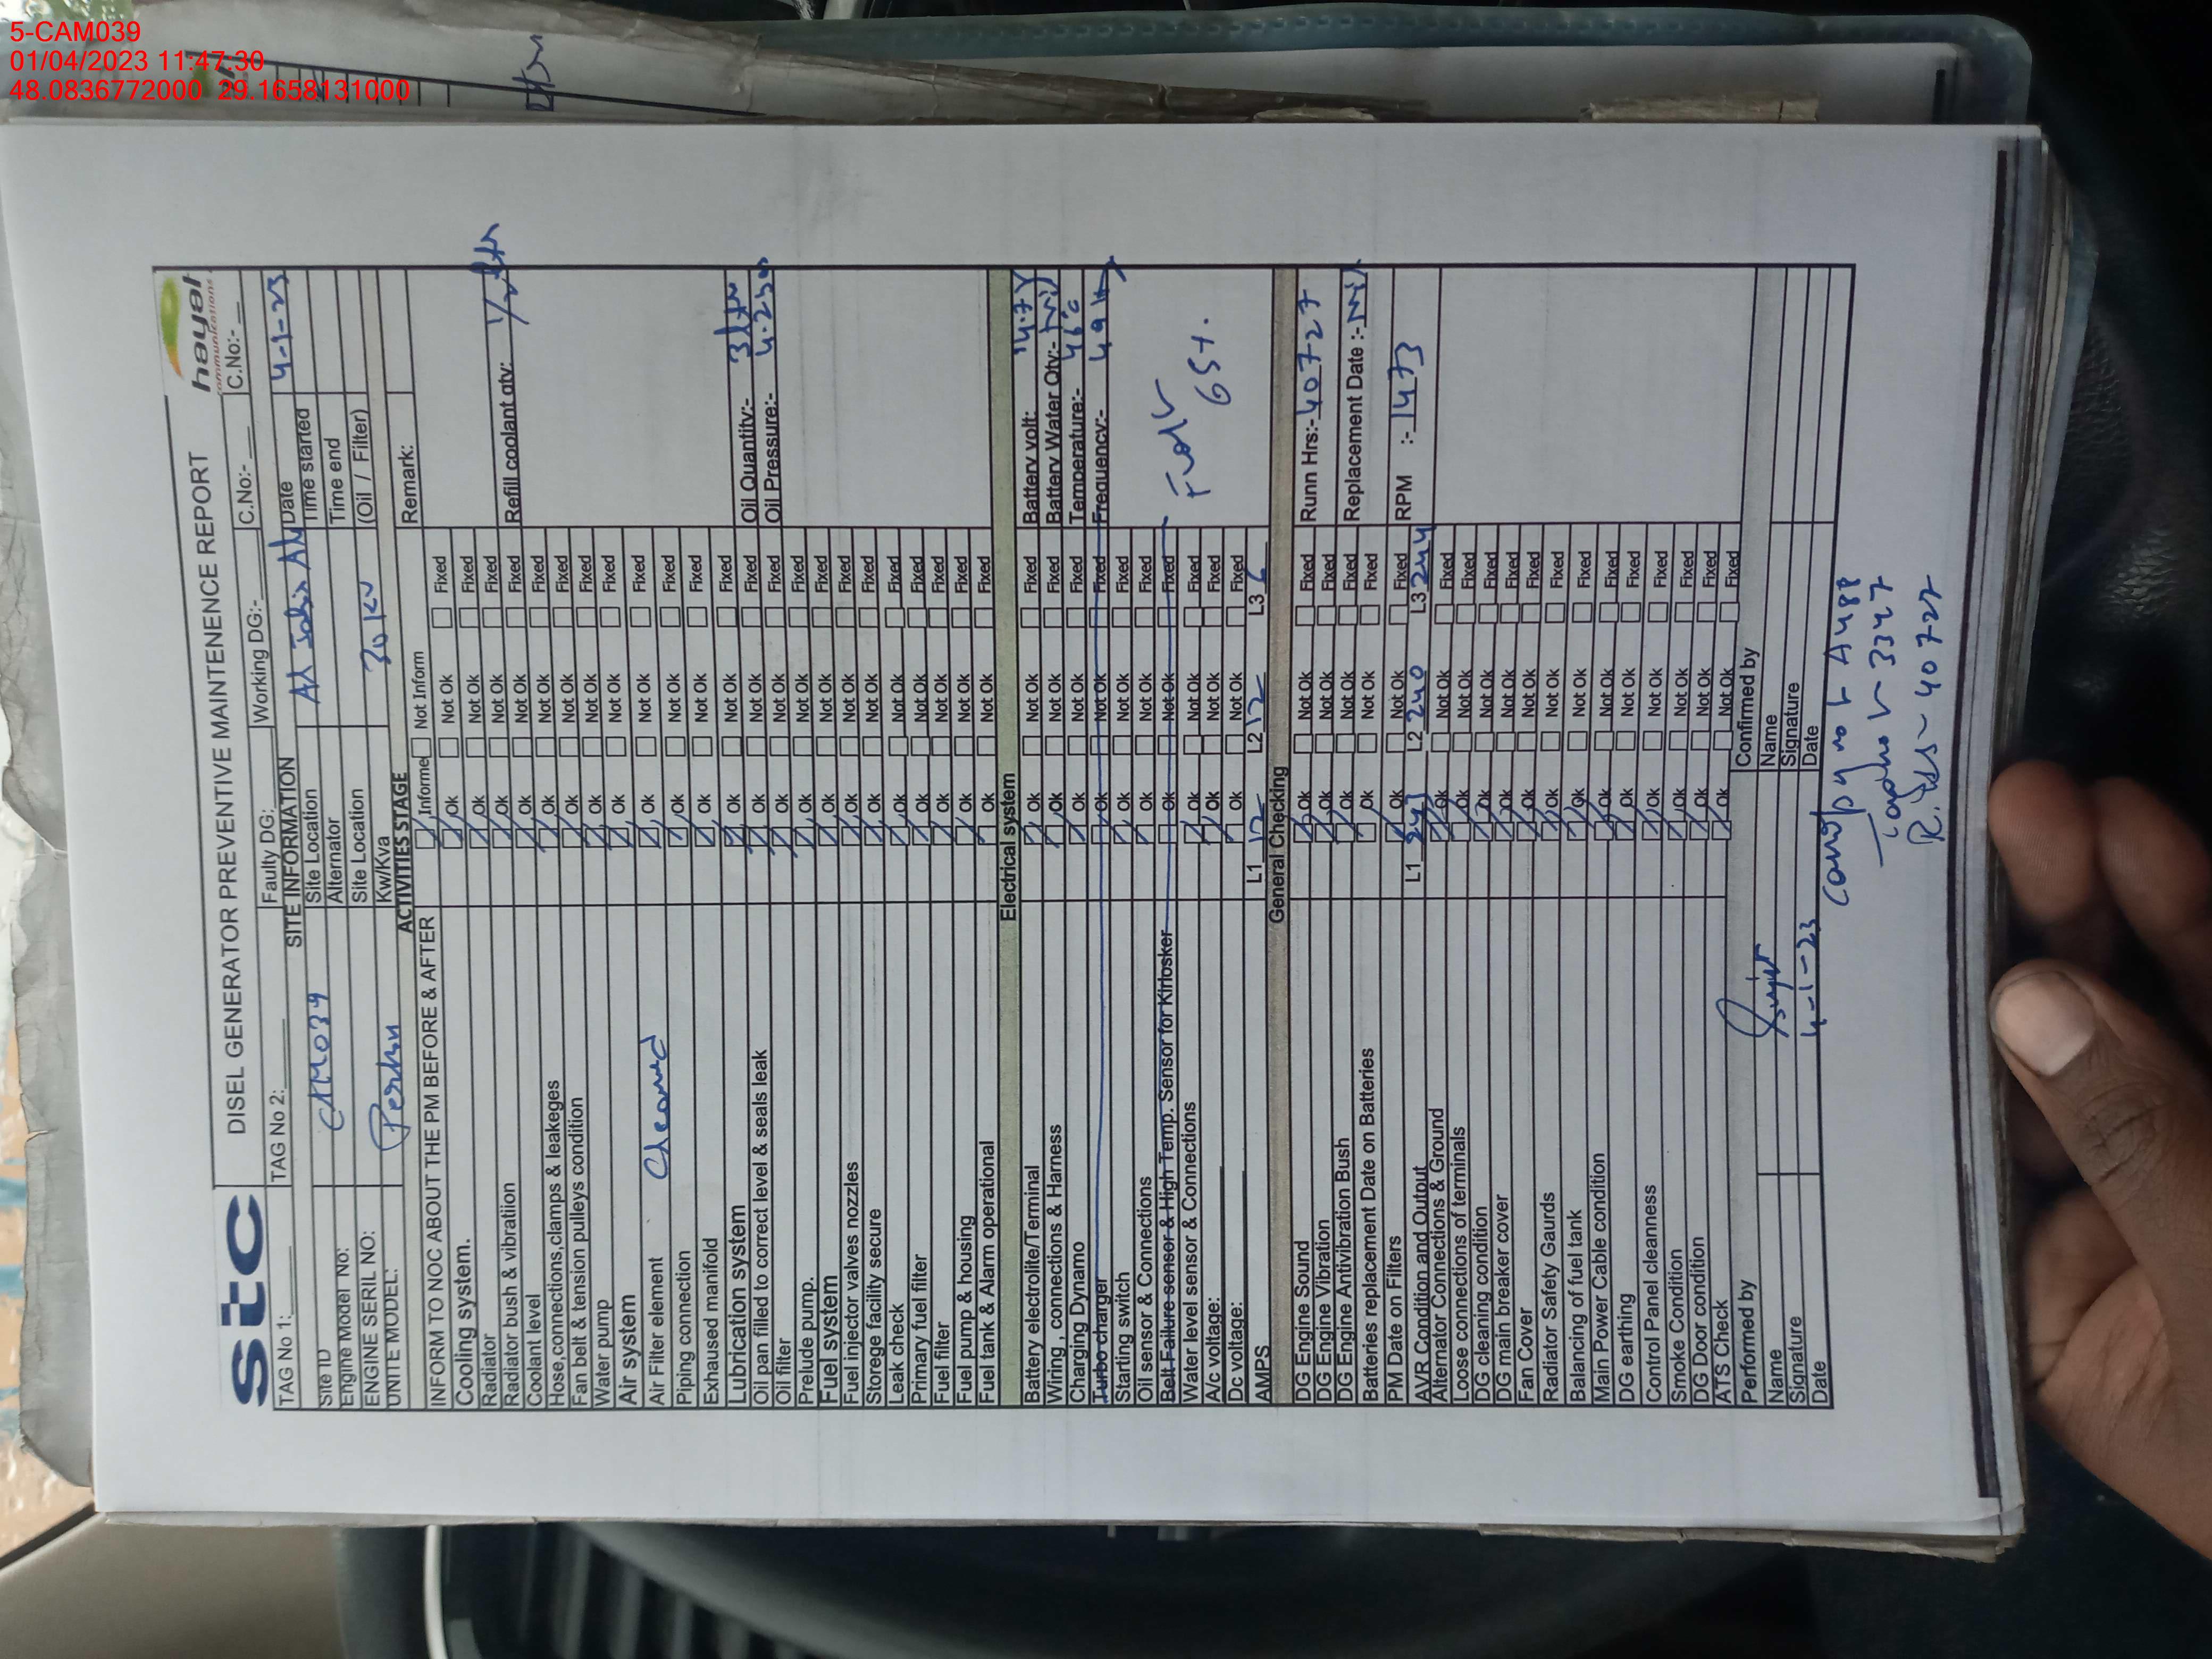 5-CAM039
01/04/2023 11:47:30
48.0836772000 29.1658131000
stc
hayat
communications
DISEL GENERATOR PREVENTIVE MAINTENENCE REPORT
TAG No 1: TAG No 2: Faulty DG: Working DG:- C.No:- C.No:-
SITE INFORMATION
Site ID CAM039 Site Location Al Date 4-1-23
Engine Model No: Alternator Time started
ENGINE SERIL NO: Site Location Time end
UNITE MODEL: Kw/Kva 30 (Oil / Filter)
ACTIVITIES STAGE Remark:
INFORM TO NOC ABOUT THE PM BEFORE & AFTER Informe Not Inform
Cooling system. Ok Not Ok Fixed
Radiator Ok Not Ok Fixed
Radiator bush & vibration Ok Not Ok Fixed
Coolant level Ok Not Ok Fixed Refill coolant qty: 1/2 ltr
Hose,connections,clamps & leakeges Ok Not Ok Fixed
Fan belt & tension pulleys condition Ok Not Ok Fixed
Water pump Ok Not Ok Fixed
Air system Ok Not Ok Fixed
Air Filter element Ok Not Ok Fixed
Piping connection Ok Not Ok Fixed
Exhaused manifold Ok Not Ok Fixed
Lubrication system Ok Not Ok Fixed
Oil pan filled to correct level & seals leak Ok Not Ok Fixed Oil Quantity:- 3 ltr
Oil filter Ok Not Ok Fixed Oil Pressure:-
Prelude pump. Ok Not Ok Fixed
Fuel system Ok Not Ok Fixed
Fuel injector valves nozzles Ok Not Ok Fixed
Storege facility secure Ok Not Ok Fixed
Leak check Ok Not Ok Fixed
Primary fuel filter Ok Not Ok Fixed
Fuel filter Ok Not Ok Fixed
Fuel pump & housing Ok Not Ok Fixed
Fuel tank & Alarm operational Ok Not Ok Fixed
Electrical system
Battery electrolite/Terminal Ok Not Ok Fixed Battery volt: 14.7V
Wiring , connections & Harness Ok Not Ok Fixed Battery Water Qty:- Nil
Charging Dynamo Ok Not Ok Fixed Temperature:- 46°c
Turbo charger Ok Not Ok Fixed Frequency:- 49 Hz
Starting switch Ok Not Ok Fixed
Oil sensor & Connections Ok Not Ok Fixed
Belt Failure senser & High Temp. Sensor for Kirlosker Ok Not Ok Fixed
Water level sensor & Connections Ok Not Ok Fixed
A/c voltage: Ok Not Ok Fixed
Dc voltage: Ok Not Ok Fixed
AMPS L1 12 L2 12 L3 6
General Checking
DG Engine Sound Ok Not Ok Fixed Runn Hrs:- 40727
DG Engine Vibration Ok Not Ok Fixed
DG Engine Antivibration Bush Ok Not Ok Fixed Replacement Date :- Nil
Batteries replacement Date on Batteries Ok Not Ok Fixed
PM Date on Filters Ok Not Ok Fixed RPM :- 1473
AVR Condition and Output L1 241 L2 240 L3 244
Alternator Connections & Ground Ok Not Ok Fixed
Loose connections of terminals Ok Not Ok Fixed
DG cleaning condition Ok Not Ok Fixed
DG main breaker cover Ok Not Ok Fixed
Fan Cover Ok Not Ok Fixed
Radiator Safety Gaurds Ok Not Ok Fixed
Balancing of fuel tank Ok Not Ok Fixed
Main Power Cable condition Ok Not Ok Fixed
DG earthing Ok Not Ok Fixed
Control Panel cleanness Ok Not Ok Fixed
Smoke Condition Ok Not Ok Fixed
DG Door condition Ok Not Ok Fixed
ATS Check Ok Not Ok Fixed
Performed by Confirmed by
Name Name
Signature Signature
Date 4-1-23 Date
3347
40727